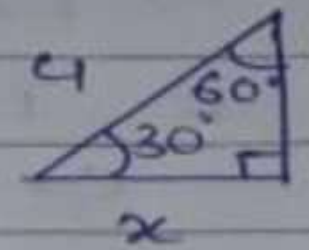 4
60°
30°
x